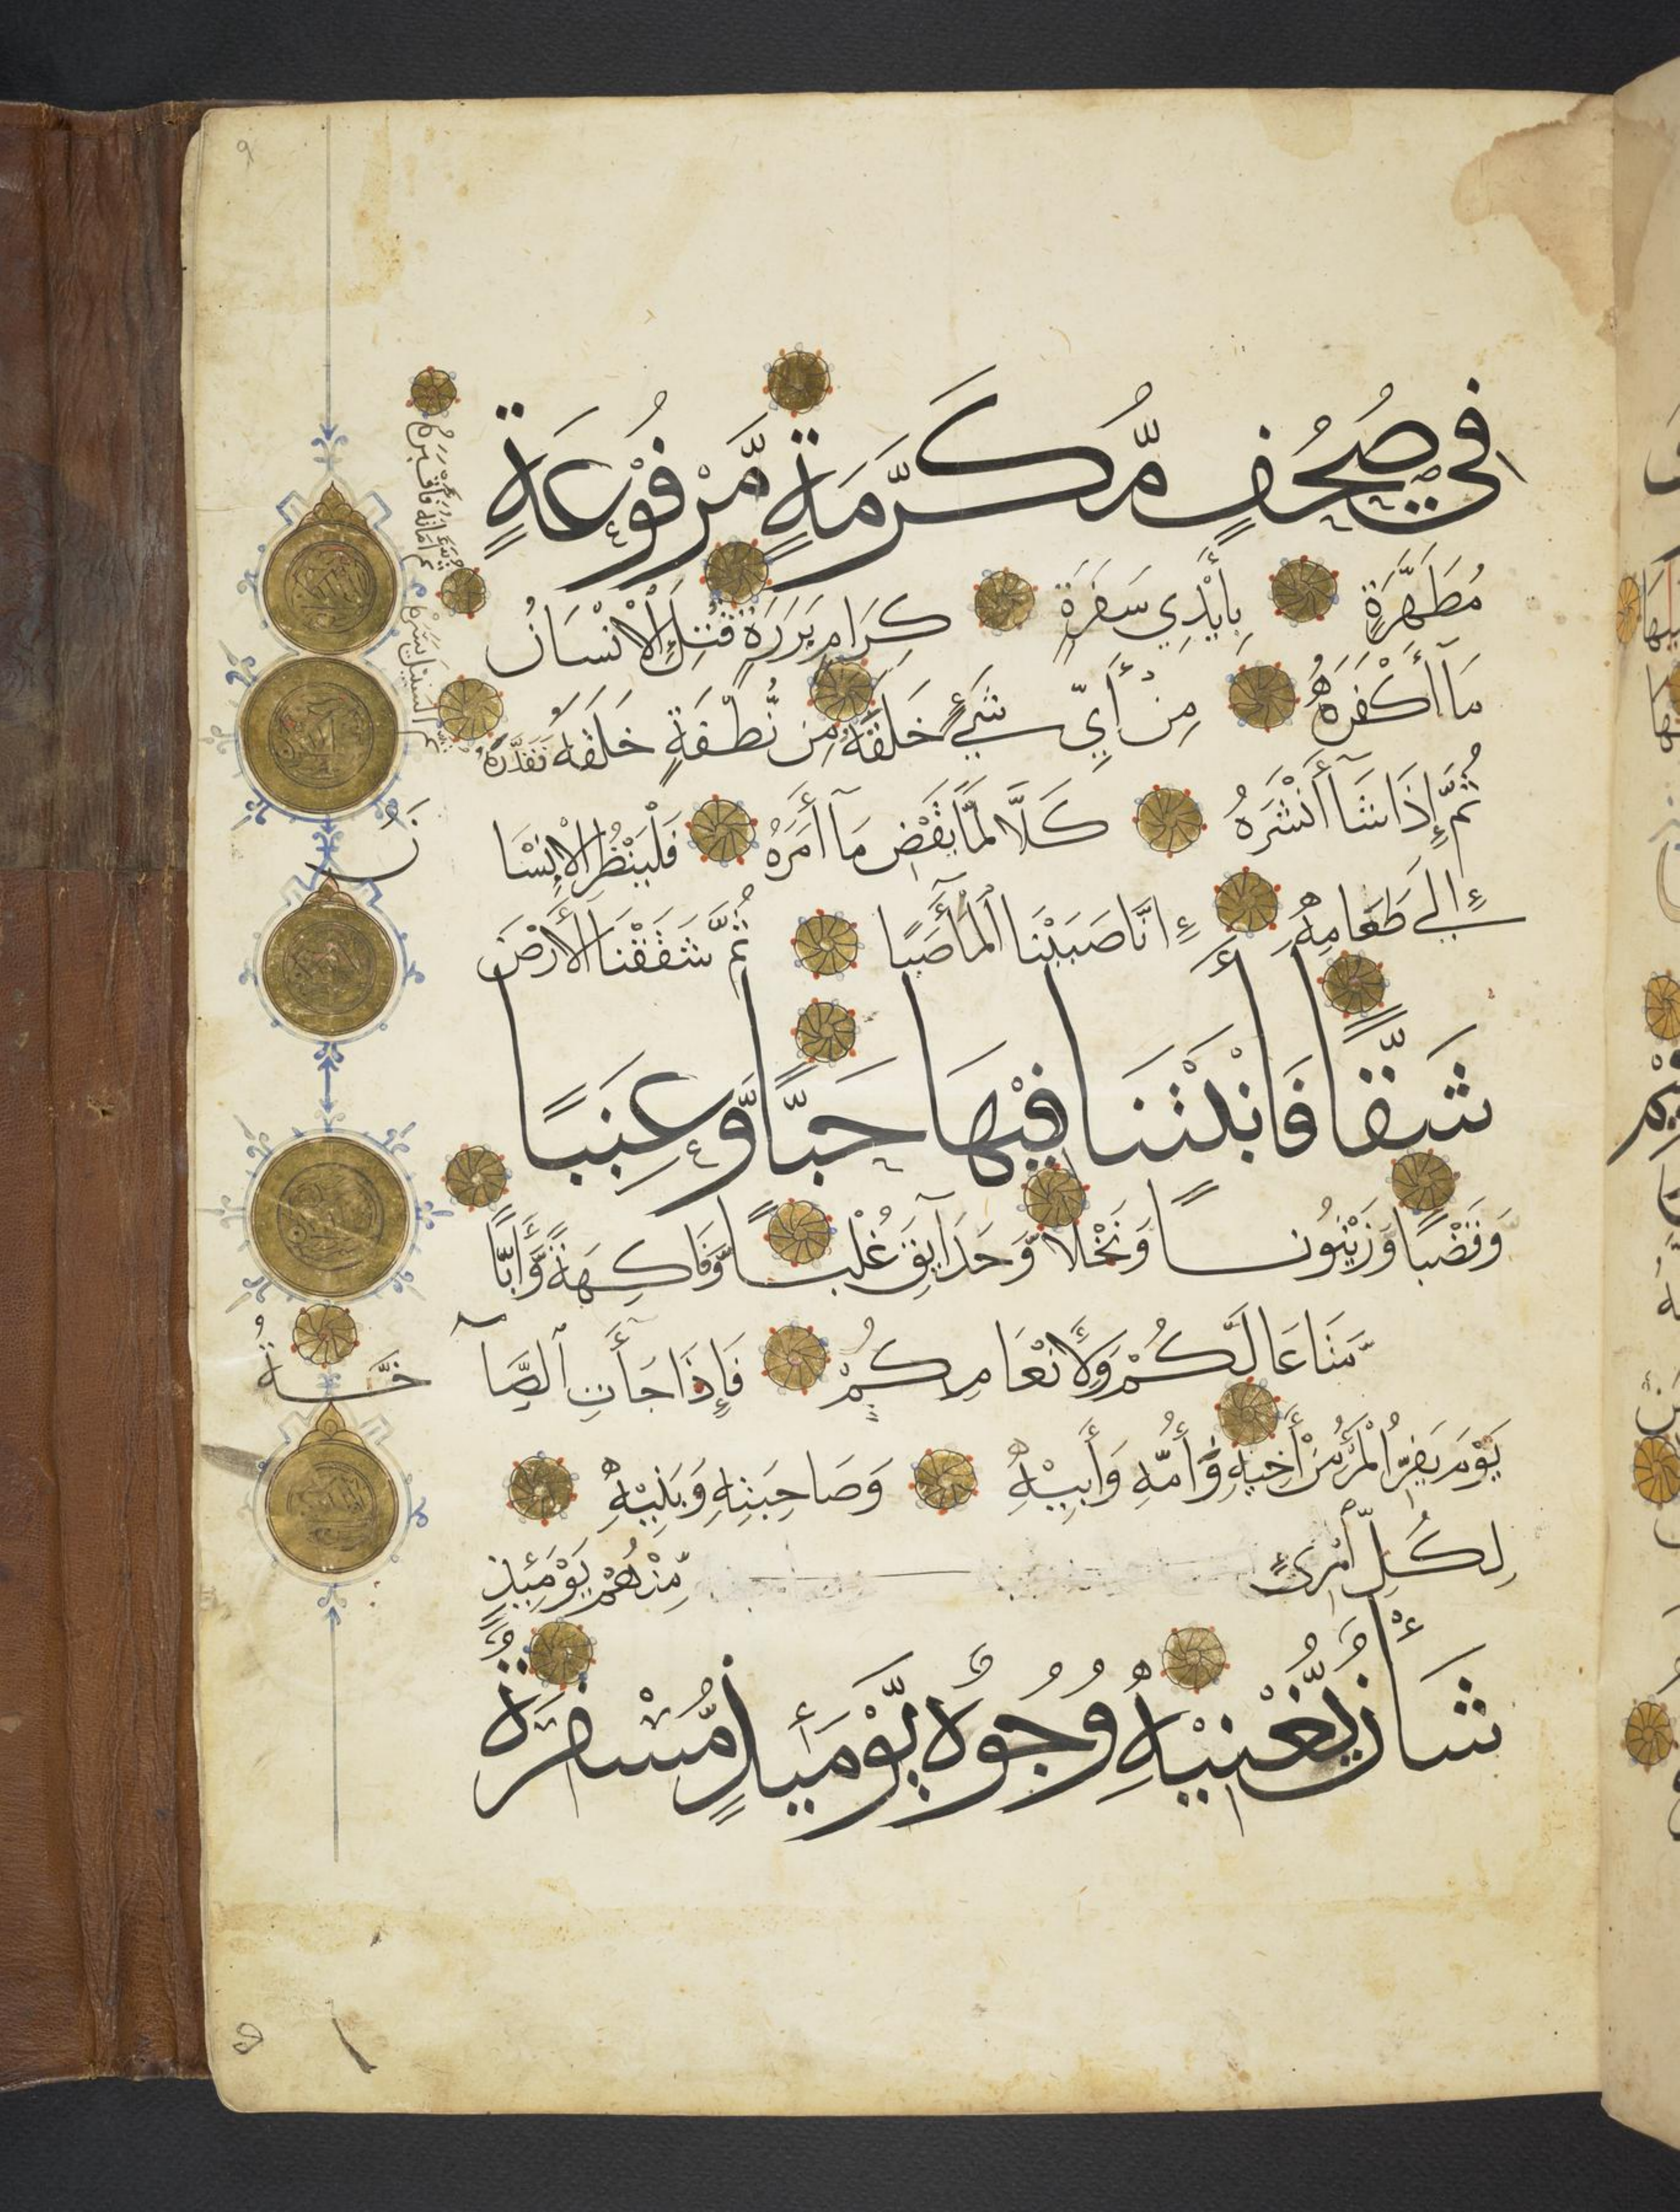 فِي صُحُفٍ مُّكَرَّمَةٍ مَّرْفُوعَةٍ
مُطَهَّرَةٍ بِأَيْدِي سَفَرَةٍ كِرَامٍ بَرَرَةٍ قُتِلَ الْإِنْسَانُ
مَا أَكْفَرَهُ مِنْ أَيِّ شَيْءٍ خَلَقَهُ مِن نُّطْفَةٍ خَلَقَهُ فَقَدَّرَهُ
ثُمَّ السَّبِيلَ يَسَّرَهُ
ثُمَّ أَمَاتَهُ فَأَقْبَرَهُ
ثُمَّ إِذَا شَآ أَنْشَرَهُ كَلَّا لَمَّا يَقْضِ مَآ أَمَرَهُ فَلْيَنْظُرِ الْإِنْسَا
نُ
إِلَى طَعَامِهِ إِنَّا صَبَبْنَا الْمَآءَ صَبًّا ثُمَّ شَقَقْنَا الْأَرْضَ
شَقًّا فَأَنْبَتْنَا فِيْهَا حَبًّا وَّعِنَبًا
وَقَضْبًا وَزَيْتُونًا وَنَخْلًا وَّحَدَآيِقَ غُلْبًا وَّفَاكِهَةً وَّأَبًّا
مَّتَاعًا لَّكُمْ وَلِأَنْعَامِكُمْ فَإِذَا جَآءَتِ الصَّآ
خَّةُ
يَوْمَ يَفِرُّ الْمَرْءُ مِنْ أَخِيْهِ وَأُمِّهِ وَأَبِيْهِ وَصَاحِبَتِهِ وَبَنِيْهِ
لِكُلِّ امْرِئٍ مِّنْهُمْ يَوْمَئِذٍ
شَأْنٌ يُّغْنِيْهِ وُجُوهٌ يَّوْمَئِذٍ مُّسْفِرَةٌ